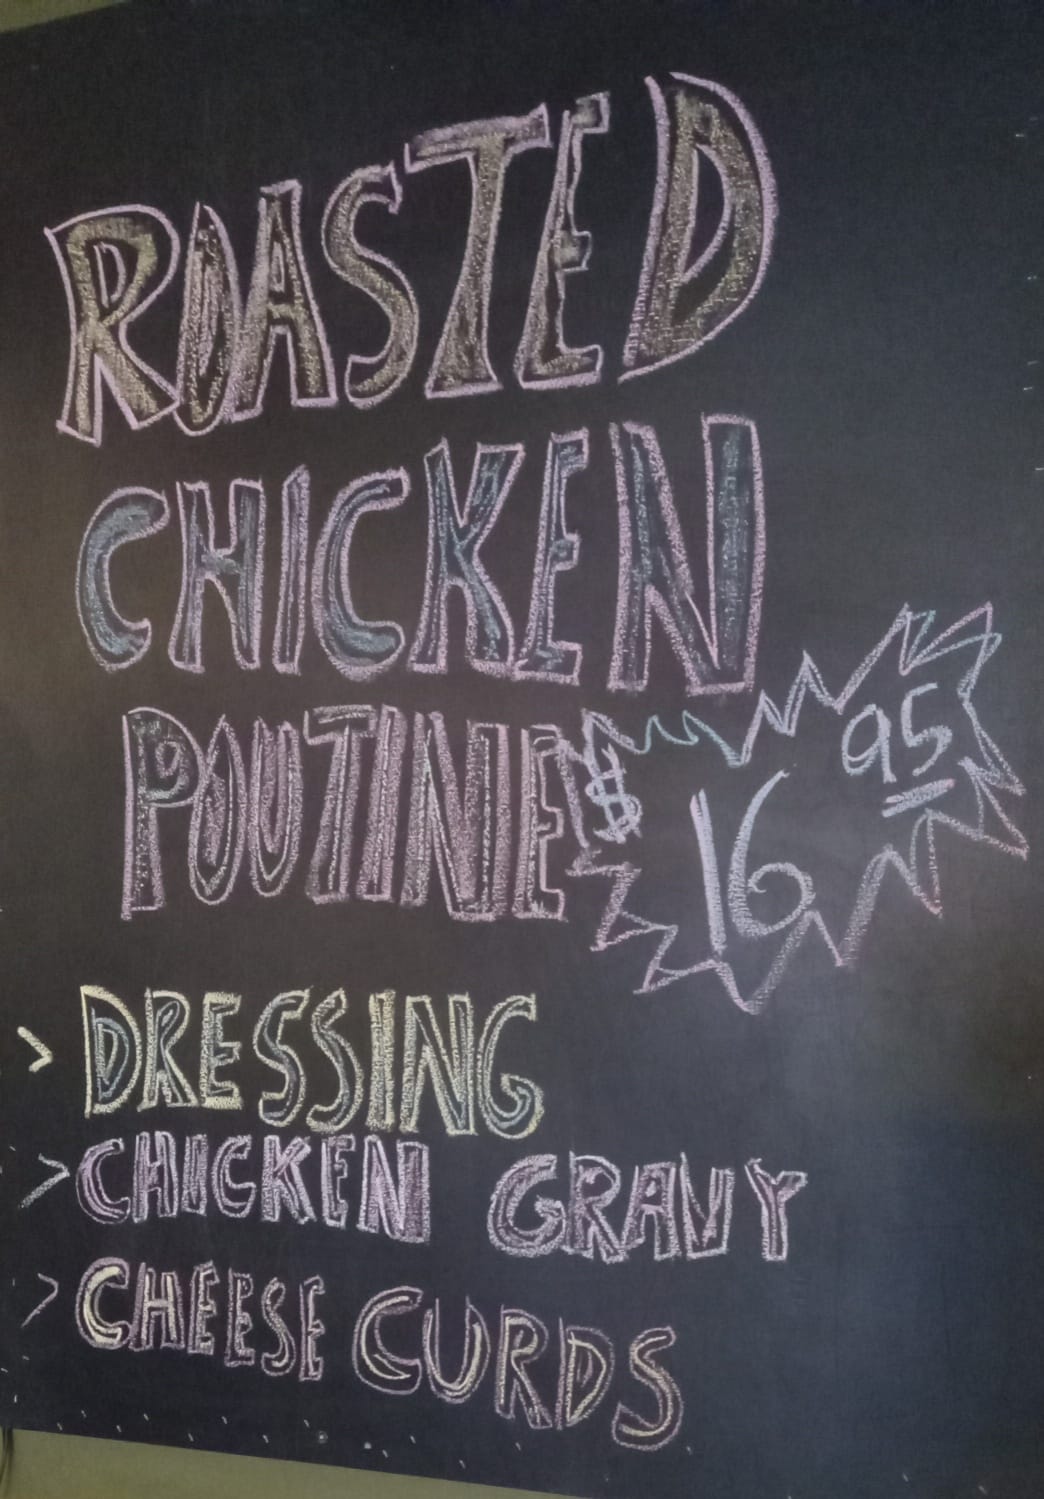 ROASTED
CHICKEN
POUTINE $16 95
> DRESSING
> CHICKEN GRAVY
> CHEESE CURDS